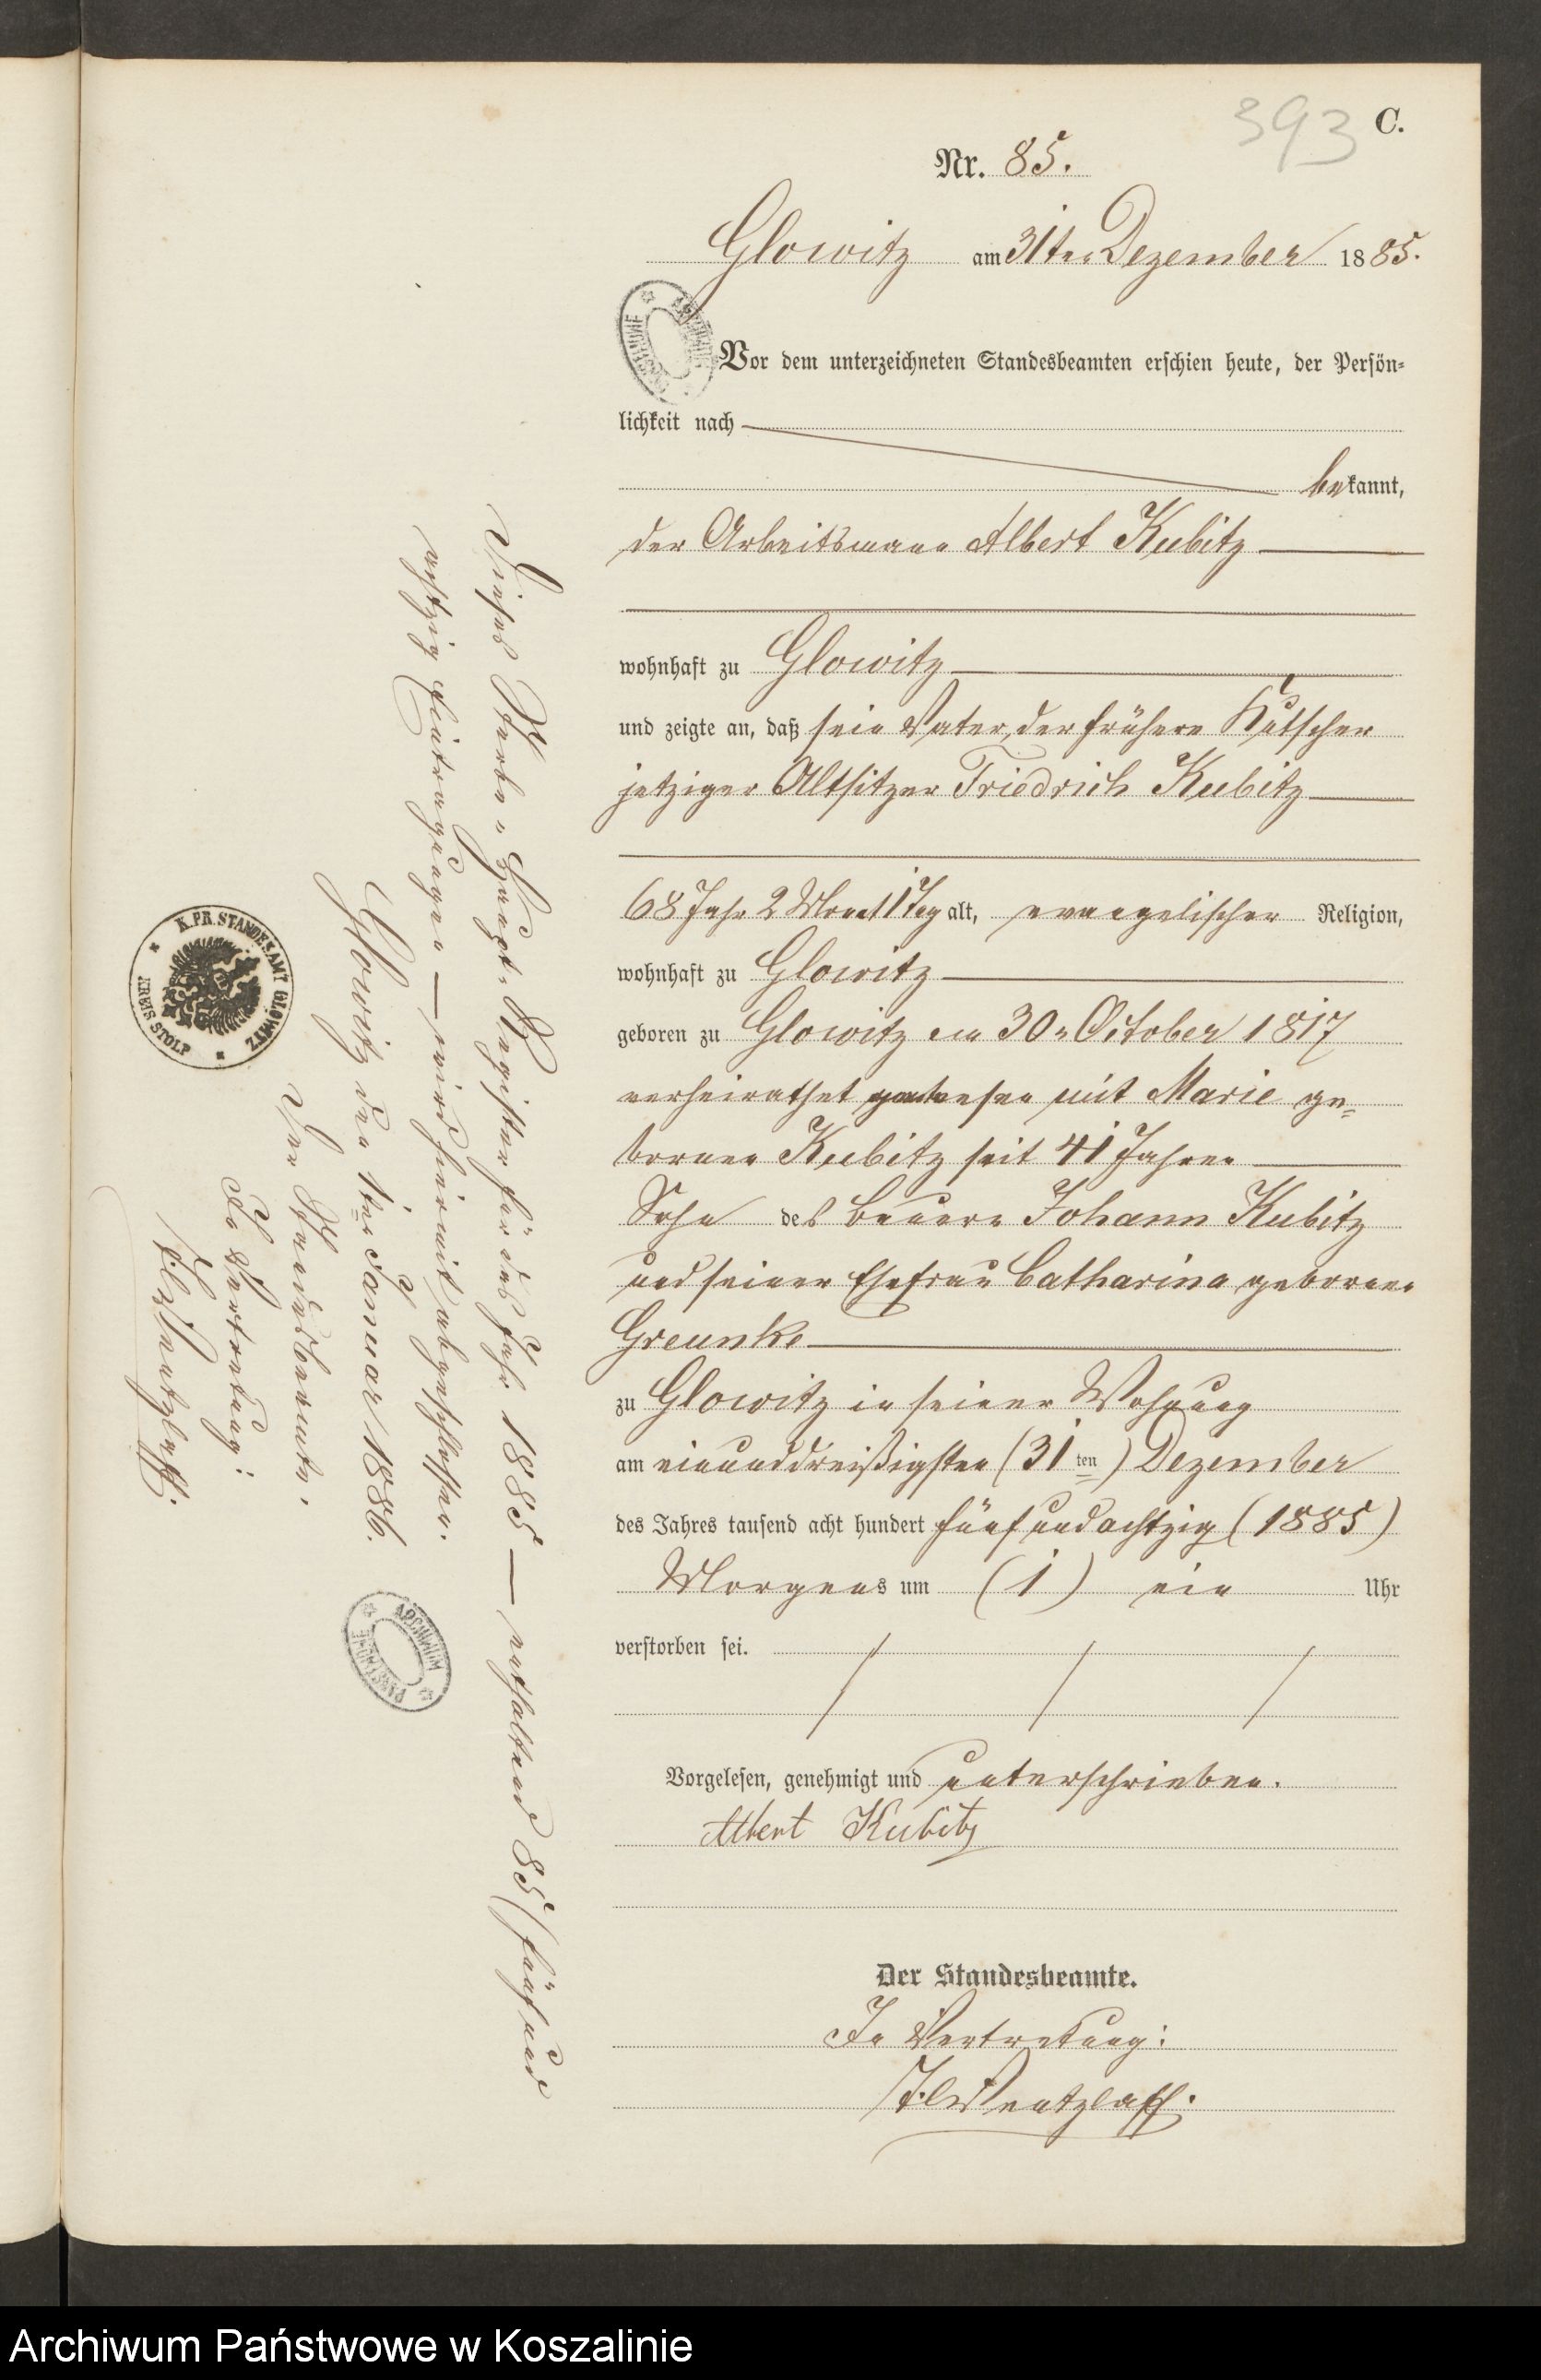 393
C.
Nr. 85.
Glowitz am 31ten Dezember 1885.
Vor dem unterzeichneten Standesbeamten erschien heute, der Persön-
lichkeit nach
bekannt,
der Arbeitsmann Albert Kubitz
wohnhaft zu Glowitz
und zeigte an, daß sein Vater, der frühere Kutscher
jetziger Altsitzer Friedrich Kubitz
68 Jahr 2 Monat 1 Tag alt, evangelischer Religion,
wohnhaft zu Glowitz
geboren zu Glowitz am 30n October 1817
verheirathet gewesen mit Marie ge-
borenen Kubitz seit 41 Jahren
Sohn des Bauern Johann Kubitz
und seiner Ehefrau Catharina geborenen
Greunke
zu Glowitz in seiner Wohnung
am einunddreißigsten (31ten) Dezember
des Jahres tausend acht hundert fünfundachtzig (1885)
Morgens um (1) ein Uhr
verstorben sei.
Vorgelesen, genehmigt und unterschrieben.
Albert Kubitz
Der Standesbeamte.
In Vertretung:
Wentzlaff.
Dieses Sterbe-Haupt-Register für das Jahr 1885 — enthaltend 85/fünfund
achtzig Eintragungen — wird hiermit abgeschlossen.
Glowitz den 1ten Januar 1886.
Der Standesbeamte.
In Vertretung:
Wentzlaff.
K. PR. STANDESAMT GLOWITZ
KREIS STOLP
ARCHIWUM PAŃSTWOWE
Archiwum Państwowe w Koszalinie